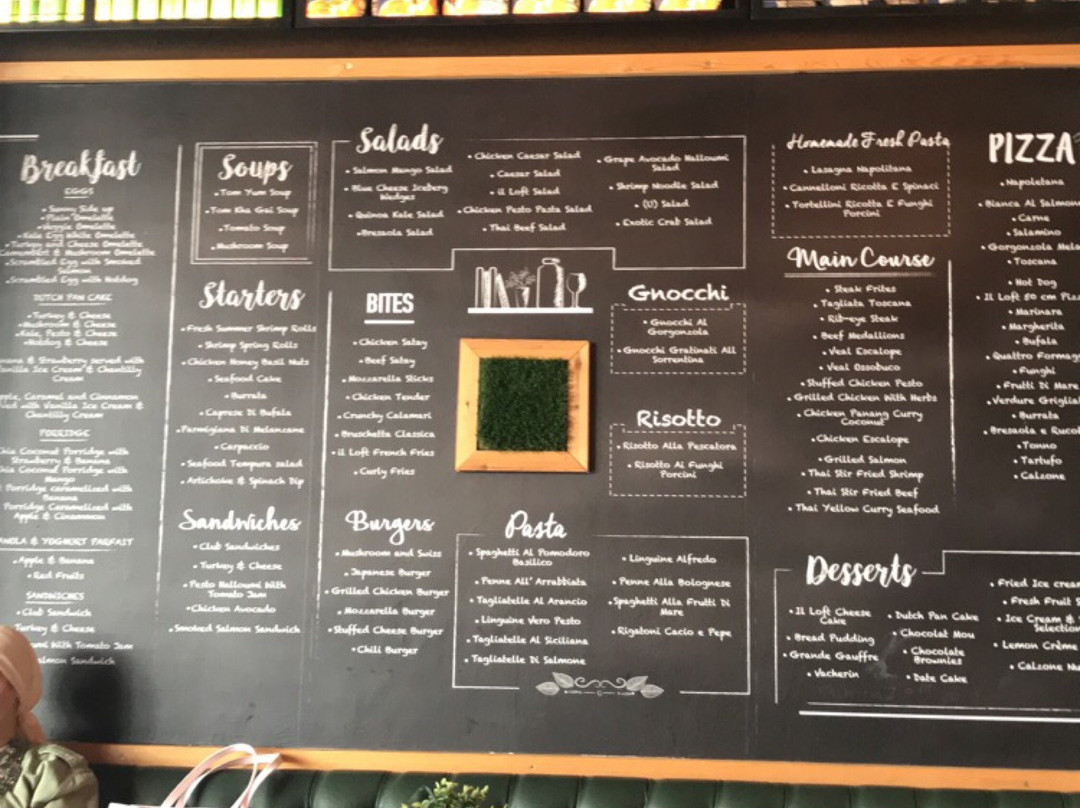 Breakfast
EGGS
• Sunny Side up
• Plain Omelette
• Veggie Omelette
• Kale Egg White Omelette
• Turkey and Cheese Omelette
& Mushroom Omelette
• Scrambled Egg with Smoked
Salmon
• Scrambled Egg with Hotdog
DUTCH PAN CAKE
• Turkey & Cheese
• Mushroom & Cheese
• Kale, Pesto & Cheese
• Hotdog & Cheese
& Strawberry served with
Vanilla Ice Cream & Chantilly
Cream
Caramel and Cinnamon
with Vanilla Ice Cream &
Chantilly Cream
PORRIDGE
Coconut Porridge with
Strawberry & Banana
Coconut Porridge with
Mango
Porridge caramelized with
Banana
Porridge caramelized with
Apple & Cinnammon
& YOGHURT PARFAIT
• Apple & Banana
• Red Fruits
SANDWICHES
• Club Sandwich
Turkey & Cheese
With Tomato Jam
Salmon Sandwich
Soups
• Tom Yum Soup
• Tom Kha Gai Soup
• Tomato Soup
• Mushroom Soup
Starters
• Fresh Summer Shrimp Rolls
• Shrimp Spring Rolls
• Chicken Honey Basil Nuts
• Seafood Cake
• Burrata
• Caprese Di Bufala
• Parmigiana Di Melanzane
• Carpaccio
• Seafood Tempura salad
• Artichoke & Spinach Dip
Sandwiches
• Club Sandwiches
• Turkey & Cheese
• Pesto Halloumi With
Tomato Jam
• Chicken Avocado
• Smoked Salmon Sandwich
Salads
• Salmon Mango Salad
• Blue Cheese Iceberg
Wedges
• Quinoa Kale Salad
• Bresaola Salad
• Chicken Caesar Salad
• Caesar Salad
• il Loft Salad
• Chicken Pesto Pasta Salad
• Thai Beef Salad
• Grape Avocado Halloumi
Salad
• Shrimp Noodle Salad
• (U) Salad
• Exotic Crab Salad
BITES
• Chicken Satay
• Beef Satay
• Mozzarella Sticks
• Chicken Tender
• Crunchy Calamari
• Bruschetta Classica
• il Loft French Fries
• Curly Fries
Burgers
• Mushroom and Swiss
• Japanese Burger
• Grilled Chicken Burger
• Mozzarella Burger
• Stuffed Cheese Burger
• Chili Burger
Gnocchi
• Gnocchi Al
Gorgonzola
• Gnocchi Gratinati All
Sorrentina
Risotto
• Risotto Alla Pescatora
• Risotto Ai Funghi
Porcini
Pasta
• Spaghetti Al Pomodoro
Basilico
• Penne All' Arrabbiata
• Tagliatelle Al Arancio
• Linguine Vero Pesto
• Tagliatelle Al Siciliana
• Tagliatelle Di Salmone
• Linguine Alfredo
• Penne Alla Bolognese
• Spaghetti Alla Frutti Di
Mare
• Rigatoni Cacio e Pepe
Homemade Fresh Pasta
• Lasagna Napolitana
• Cannelloni Ricotta E Spinaci
• Tortellini Ricotta E Funghi
Porcini
Main Course
• Steak Frites
• Tagliata Toscana
• Rib-eye Steak
• Beef Medallions
• Veal Escalope
• Veal Ossobuco
• Stuffed Chicken Pesto
• Grilled Chicken With Herbs
• Chicken Panang Curry
Coconut
• Chicken Escalope
• Grilled Salmon
• Thai Stir Fried Shrimp
• Thai Stir Fried Beef
• Thai Yellow Curry Seafood
PIZZA
• Napoletana
• Bianca Al Salmon
• Carne
• Salamino
• Gorgonzola Mela
• Toscana
• Hot Dog
• Il Loft 50 cm Pizz
• Marinara
• Margherita
• Bufala
• Quattro Formag
• Funghi
• Frutti Di Mare
• Verdure Griglia
• Burrata
• Bresaola e Ruco
• Tonno
• Tartufo
• Calzone
Desserts
• Il Loft Cheese
Cake
• Bread Pudding
• Grande Gauffre
• Vacherin
• Dutch Pan Cake
• Chocolat Mou
• Chocolate
Brownies
• Date Cake
• Fried Ice cream
• Fresh Fruit S
• Ice Cream &
Selection
• Lemon Crème
• Calzone Nu